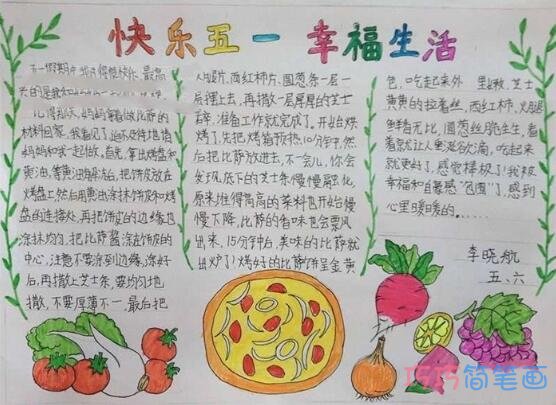 快乐五一 幸福生活
五一假期中我过得很快乐。最高
记得那天,妈妈拿着做比萨的
材料回家,我看见了,迫不及待地请
妈妈和我一起做。首先,拿出烤盘和
黄油,等黄油
烤盘上,然后用黄油涂抹饼皮和烤
盘的连接处,再把饼皮的边缘也
涂抹均匀,把比萨酱涂在饼皮的
中心,注意不要涂到边缘,涂好
后,再撒上芝士条,要均匀地
撒,不要厚薄不一,最后把
火腿片、西红柿片、圆葱条一层一
层摆上去,再撒一层厚厚的芝士
碎,准备工作就完成了。开始烘
烤了,先把烤箱预热10分钟,然
后把比萨放进去,不一会儿,你会
发现,底下的芝士条慢慢融化,
原来堆得高高的菜料也开始慢
慢下降,比萨的香味也会飘风
出来,15分钟后,美味的比萨就
出炉了!烤好的比萨饼呈金黄
色,吃起来外 里嫩,芝士
黄黄的拉着丝,西红柿、火腿
鲜香无比,圆葱丝脆生生,看
着就让人垂涎欲滴,吃起来
就更好了,感觉棒极了!我被
幸福和自豪感“包围”了,感到
心里暖暖的。
李晓航
五、六
巧巧简笔画